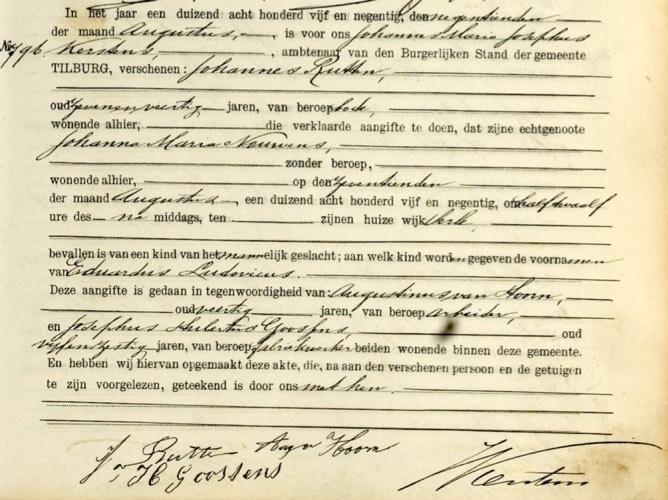 In het jaar een duizend acht honderd vijf en negentig, den negentienden
der maand Augustus, is voor ons Johannes Maria Josephus
No. 796. Kerstens, ambtenaar van den Burgerlijken Stand der gemeente
TILBURG, verschenen: Johannes Rutten,
oud zevenenveertig jaren, van beroep kok,
wonende alhier, die verklaarde aangifte te doen, dat zijne echtgenoote
Johanna Maria Nouwens,
zonder beroep,
wonende alhier, op den zeventienden
der maand Augustus een duizend acht honderd vijf en negentig, om half twaalf
ure des na middags, ten zijnen huize wijk Kerk,
bevallen is van een kind van het mannelijk geslacht; aan welk kind worden gegeven de voornamen
van Eduardus Ludovicus.
Deze aangifte is gedaan in tegenwoordigheid van: Augustinus van Hoorn,
oud veertig jaren, van beroep arbeider,
en Josephus Hubertus Goossens, oud
vijfenzestig jaren, van beroep fabriekwerker beiden wonende binnen deze gemeente.
En hebben wij hiervan opgemaakt deze akte, die, na aan den verschenen persoon en de getuigen
te zijn voorgelezen, geteekend is door ons met hen.
Rutten Aug v Hoorn
J H Goossens Kerstens